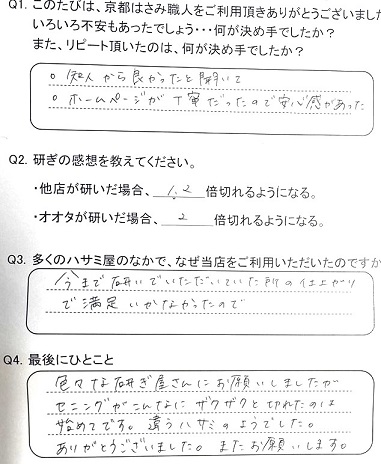 Q1. このたびは、京都はさみ職人をご利用頂きありがとうございました
いろいろ不安もあったでしょう・・・何が決め手でしたか？
また、リピート頂いたのは、何が決め手でしたか？
○ 知人から良かったと聞いて
○ ホームページが丁寧だったので安心感があった
Q2. 研ぎの感想を教えてください。
・他店が研いだ場合、 1.2 倍切れるようになる。
・オオタが研いだ場合、 2 倍切れるようになる。
Q3. 多くのハサミ屋のなかで、なぜ当店をご利用いただいたのですか
今まで研いでいただいていた所の仕上がり
で満足いかなかったので
Q4. 最後にひとこと
色々な研ぎ屋さんにお願いしましたが
セニングがこんなにザクザクと切れたのは
始めてです。違うハサミのようでした。
ありがとうございました。またお願いします。